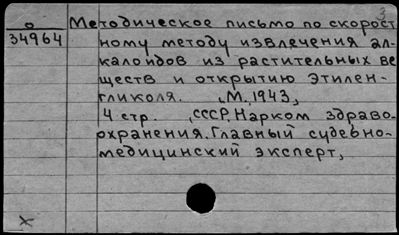 3
о
34964
Методическое письмо по скорост
ному методу извлечения ал-
калоидов из растительных ве
ществ и открытию этилен-
гликоля. М., 1943,
4 стр. , СССР, Нарком здраво-
охранения. Главный судебно-
медицинский эксперт,
х